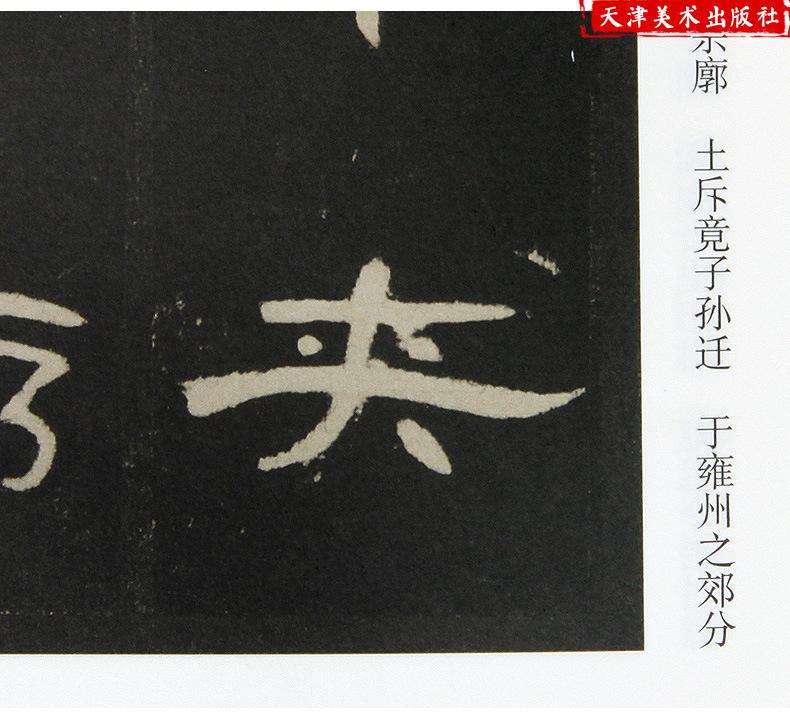 天津美术出版社
廓 土斥竟子孙迁 于雍州之郊分
夹